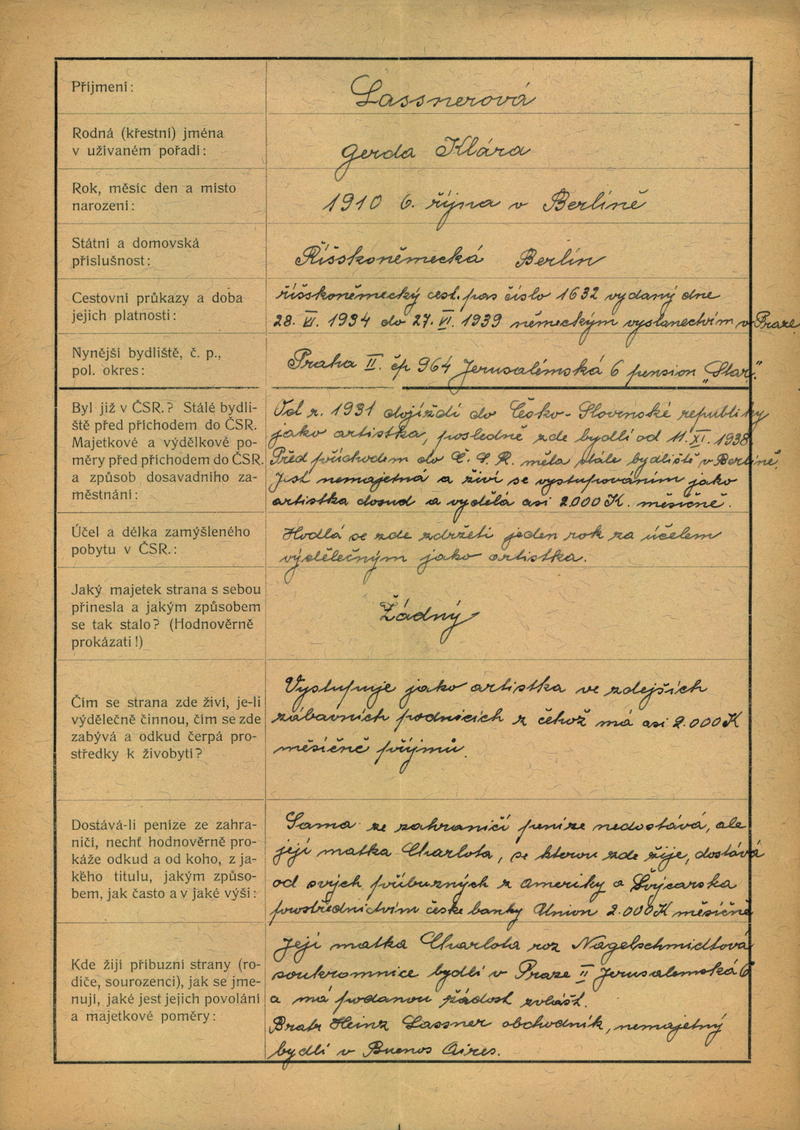 Příjmení:
Lassnerová
Rodná (křestní) jména
v užívaném pořadí:
Gerda Klára
Rok, měsíc den a místo
narození:
1910 6. října v Berlíně
Státní a domovská
příslušnost:
Říšskoněmecká Berlín
Cestovní průkazy a doba
jejich platnosti:
říšskoněmecký cest. pas číslo 1632 vydaný dne
28. VI. 1934 do 27. VI. 1939 německým vyslanectvím v Praze
Nynější bydliště, č. p.,
pol. okres:
Praha II. čp 964 Jerusalémská 6 pension „Star".
Byl již v ČSR.? Stálé bydli-
ště před příchodem do ČSR.
Majetkové a výdělkové po-
měry před příchodem do ČSR.
a způsob dosavadního za-
městnání:
Od r. 1931 dojíždí do Česko-Slovenské republiky
jako artistka, posledně zde bydlí od 11. XI. 1938
Před příchodem do Č. S. R. měla stálé bydliště v Berlíně.
Jest nemajetná a živí se vystupováním jako
artistka dosud a vydělá asi 2.000 K. měsíčně.
Účel a délka zamýšleného
pobytu v ČSR.:
Hodlá se zde zdržeti jeden rok za účelem
výdělečným jako artistka.
Jaký majetek strana s sebou
přinesla a jakým způsobem
se tak stalo? (Hodnověrně
prokázati!)
Žádný
Čím se strana zde živí, je-li
výdělečně činnou, čím se zde
zabývá a odkud čerpá pro-
středky k živobytí?
Vystupuje jako artistka ve zdejších
zábavních podnicích z čehož má asi 2.000 K
měsíčně příjmů.
Dostává-li peníze ze zahra-
ničí, nechť hodnověrně pro-
káže odkud a od koho, z ja-
kého titulu, jakým způso-
bem, jak často a v jaké výši:
Sama ze zahraničí peníze nedostává, ale
její matka Charlota, se kterou zde žije, dostává
od svých příbuzných z Ameriky a Švýcarska
prostřednictvím české banky Union 2.000 K měsíčně
Kde žijí příbuzní strany (ro-
diče, sourozenci), jak se jme-
nují, jaké jest jejich povolání
a majetkové poměry:
Její matka Charlota roz Nagelschmidtová
soukromnice bydlí v Praze II Jerusalemská 6
a má podanou žádost zvlášť.
Bratr Heinz Lassner obchodník, nemajetný
bydlí v Buenos Aires.